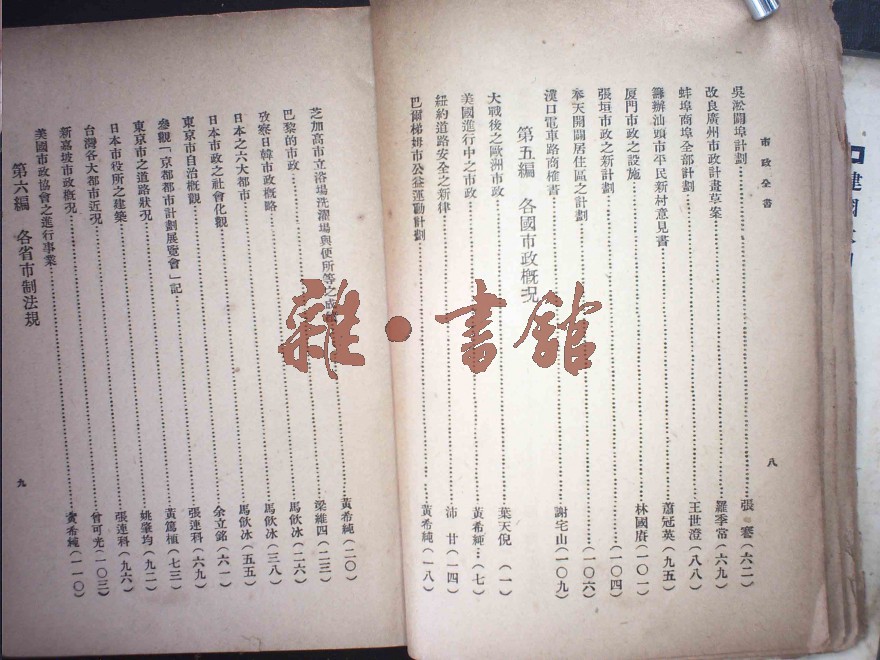 市政全書
八
吳淞闢埠計劃……張 謇(六二)
改良廣州市政計畫草案……羅季常(六九)
蚌埠商埠全部計劃……王世澄(八八)
籌辦汕頭市平民新村意見書……蕭冠英(九五)
厦門市政之設施……林國賡(一〇一)
張垣市政之新計劃……(一〇四)
奉天開闢居住區之計劃……(一〇六)
漢口電車路商榷書……謝宅山(一〇九)
第五編 各國市政概況
大戰後之歐洲市政……葉天倪(一)
美國進行中之市政……黃希純…(七)
紐約道路安全之新律……沛 甘(一四)
巴爾梯姆市公益運動計劃……黃希純(一八)
芝加高市立浴場洗濯場與便所等之成……黃希純(二〇)
巴黎的市政……梁維四(二三)
攷察日韓市政概略……馬飲冰(二六)
日本之六大都市……馬飲冰(三八)
日本市政之社會化觀……馬飲冰(五五)
東京市自治概觀……余立銘(六一)
參觀「京都都市計劃展覽會」記……張連科(六九)
東京市之道路狀況……黃篤植(七三)
日本市役所之建築……姚肇均(九二)
台灣各大都市近况……張連科(九六)
新嘉坡市政概况……曾可光(一〇三)
美國市政協會之進行事業……黃希純(一一〇)
第六編 各省市制法規
九
雜·書館
建國